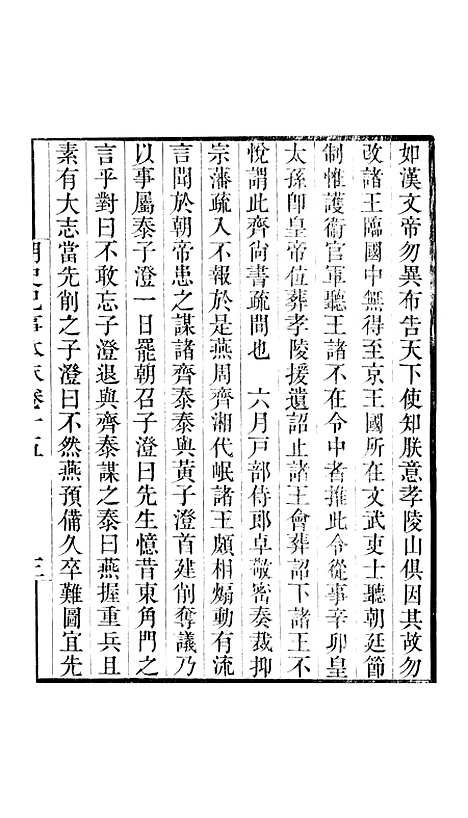 如漢文帝勿異布告天下使知朕意孝陵山俱因其故勿
改諸王臨國中無得至京王國所在文武吏士聽朝廷節
制惟護衛官軍聽王諸不在令中者推此令從事辛卯皇
太孫卽皇帝位葬孝陵援遺詔止諸王會葬詔下諸王不
悅謂此齊尙書疏間也　六月戸部侍郎卓敬密奏裁抑
宗藩疏入不報於是燕周齊湘代岷諸王頗相煽動有流
言聞於朝帝患之謀諸齊泰泰與黃子澄首建削奪議乃
以事屬泰子澄一日罷朝召子澄曰先生憶昔東角門之
言乎對曰不敢忘子澄退與齊泰謀之泰曰燕握重兵且
素有大志當先削之子澄曰不然燕預備久卒難圖宜先
明史紀事本末卷十五　三